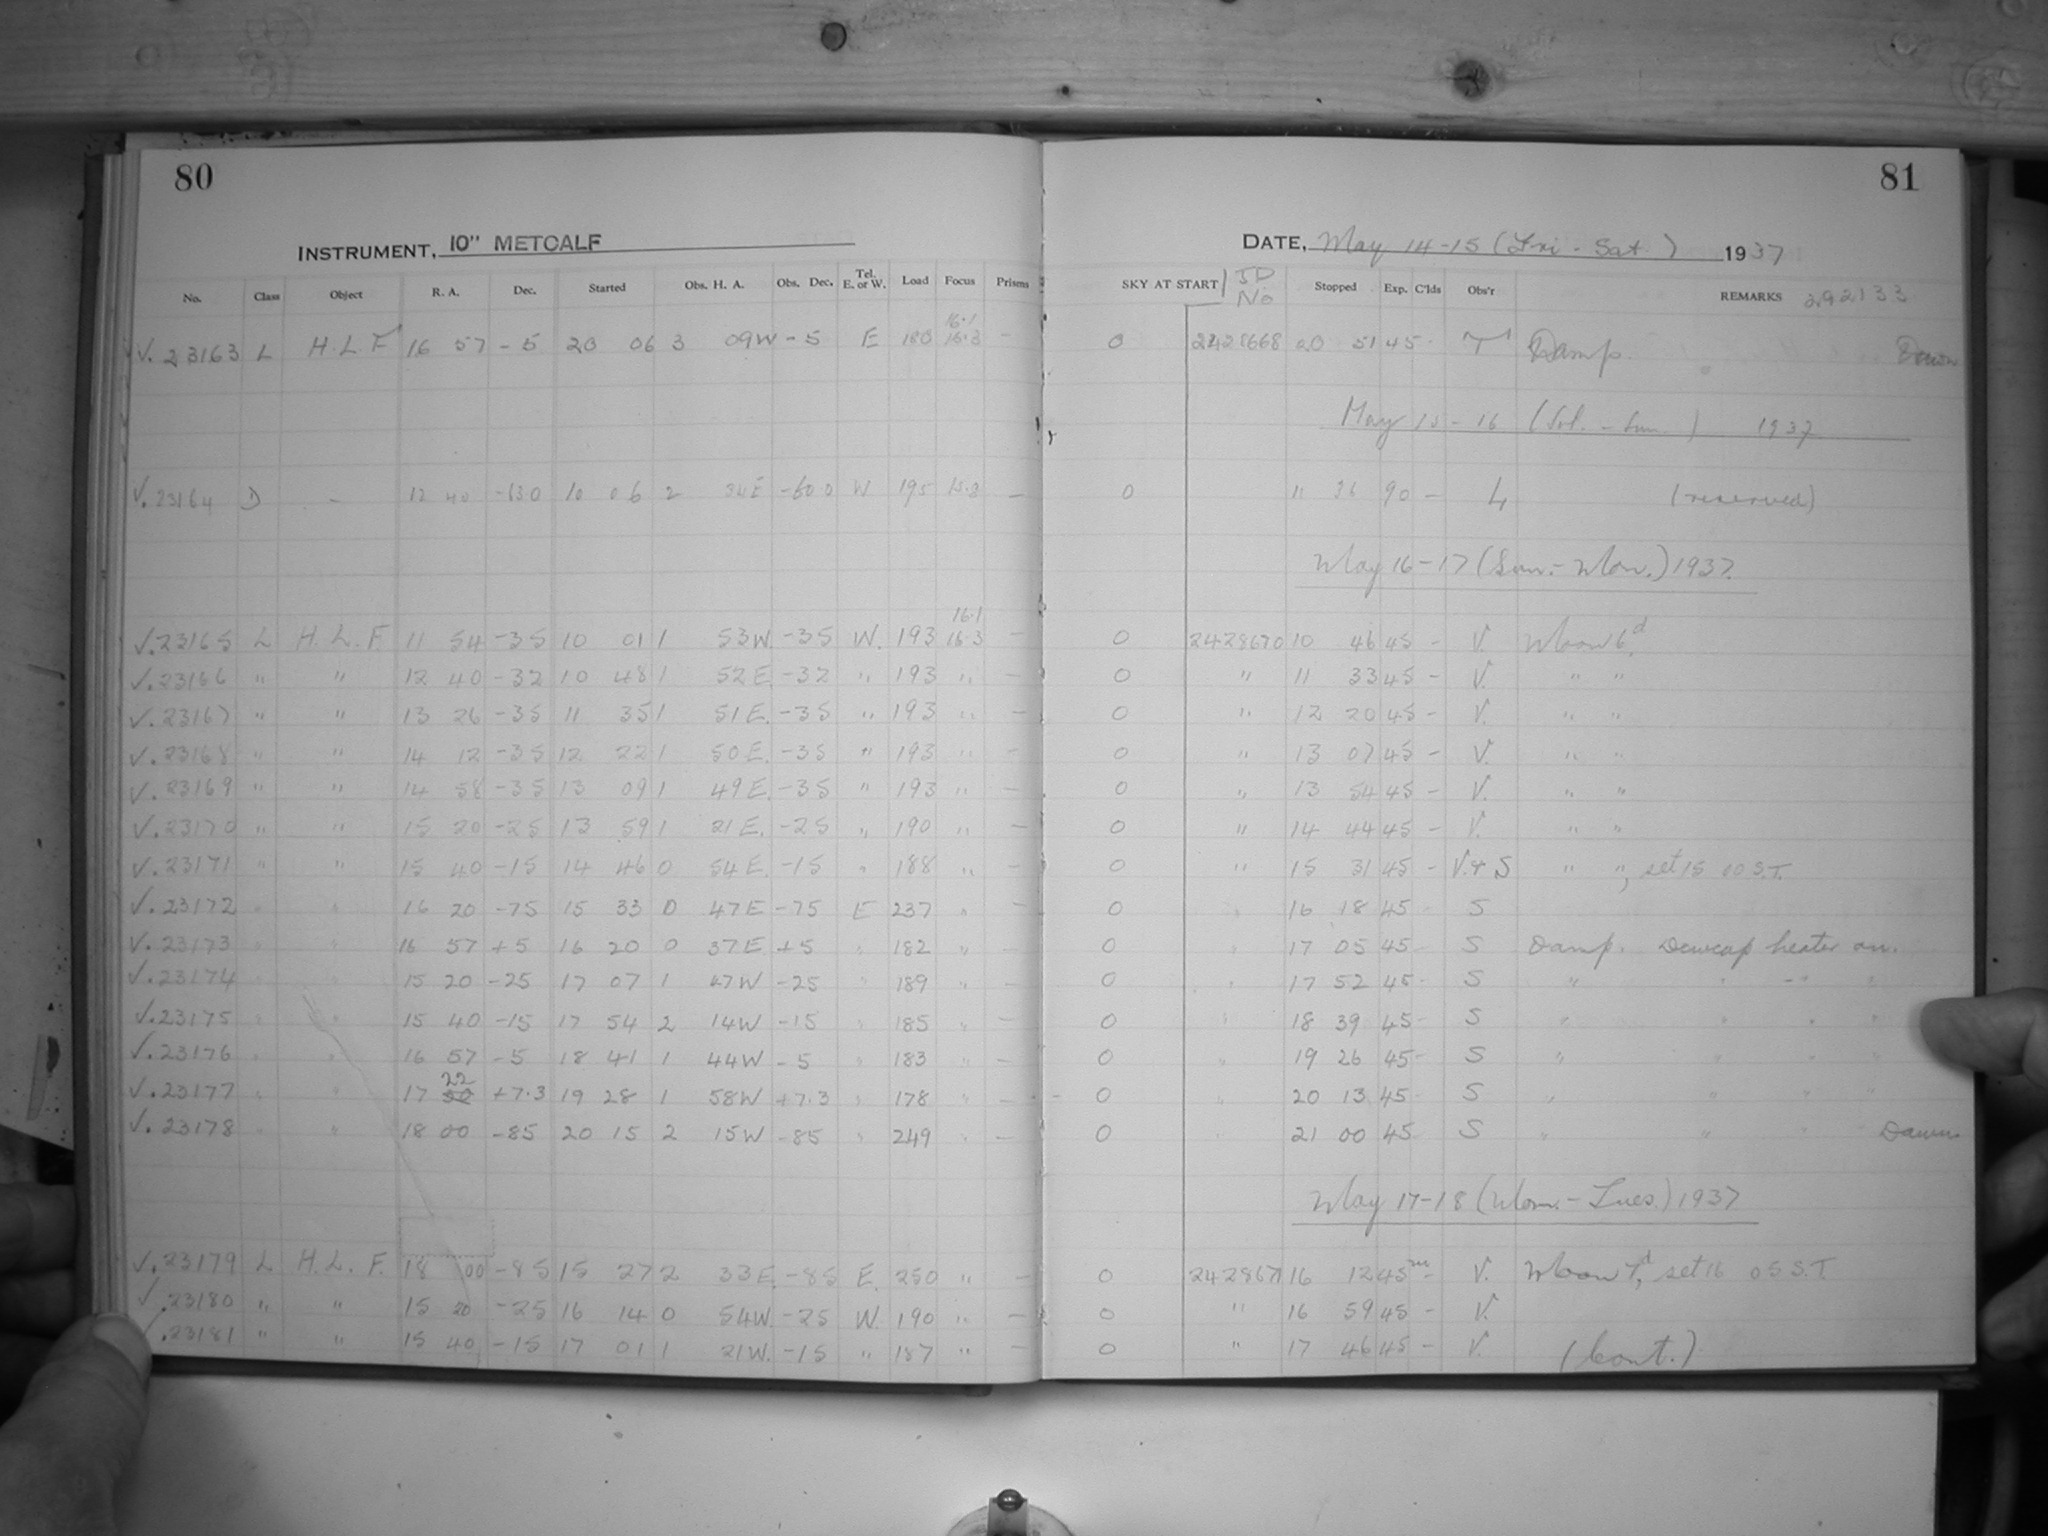 80
81
INSTRUMENT, 10" METCALF
DATE, May 14-15 (Fri - Sat.) 1937
No. Class Object R. A. Dec. Started Obs. H. A. Obs. Dec. Tel. E. or W. Load Focus Prisms SKY AT START JD No Stopped Exp. C'lds Obs'r REMARKS 292133
V. 23163 L H.L.F 16 57 - 5 20 06 3 09W - 5 E 180 16.1 16.3 - 0 2428668 20 51 45 - T Damp. Dawn
May 15 - 16 (Sat. - Sun.) 1937
V. 23164 D - 12 40 10 06 2 34E -600 W 195 - 0 11 36 90 - L (reserved)
May 16-17 (Sun.- Mon.) 1937.
V. 23165 L H.L.F. 11 54 -35 10 01 1 53W. -35 W. 193 16.1 16.3 - 0 2428670 10 46 45 - V. Moon 6d.
V. 23166 " " 12 40 -32 10 48 1 52E. -32 " 193 " - 0 " 11 33 45 - V. " "
V. 23167 " " 13 26 -35 11 35 1 51E. -35 " 193 " - 0 " 12 20 45 - V. " "
V. 23168 " " 14 12 -35 12 22 1 50E. -35 " 193 " - 0 " 13 07 45 - V. " "
V. 23169 " " 14 58 -35 13 09 1 49E. -35 " 193 " - 0 " 13 54 45 - V. " "
V. 23170 " " 15 20 -25 13 59 1 21E. -25 " 190 " - 0 " 14 44 45 - V. " "
V. 23171 " " 15 40 -15 14 46 0 54E. -15 " 188 " - 0 " 15 31 45 - V. + S " ", set 15 00 S.T.
V. 23172 " " 16 20 -75 15 33 0 47E -75 E 237 " - 0 " 16 18 45 - S
V. 23173 " " 16 57 +5 16 20 0 37E +5 " 182 " - 0 " 17 05 45 - S Damp. Dewcap heater on.
V. 23174 " " 15 20 -25 17 07 1 47W -25 " 189 " - 0 " 17 52 45 - S " " " "
V. 23175 " " 15 40 -15 17 54 2 14W -15 " 185 " - 0 " 18 39 45 - S " " " "
V. 23176 " " 16 57 -5 18 41 1 44W -5 " 183 " - 0 " 19 26 45 - S " " " "
V. 23177 " " 17 22 +7.3 19 28 1 58W +7.3 " 178 " - 0 " 20 13 45 - S " " " "
V. 23178 " " 18 00 -85 20 15 2 15W -85 " 249 " - 0 " 21 00 45 - S " " " Dawn
May 17-18 (Mon.- Tues.) 1937
V. 23179 L H.L.F. 18 00 -85 15 27 2 33E. -85 E. 250 " - 0 2428671 16 12 45m - V. Moon 7d, set 16 05 S.T.
V. 23180 " " 15 20 -25 16 14 0 54W. -25 W. 190 " - 0 " 16 59 45 - V.
V. 23181 " " 15 40 -15 17 01 1 21W. -15 " 187 " - 0 " 17 46 45 - V. (Cont.)